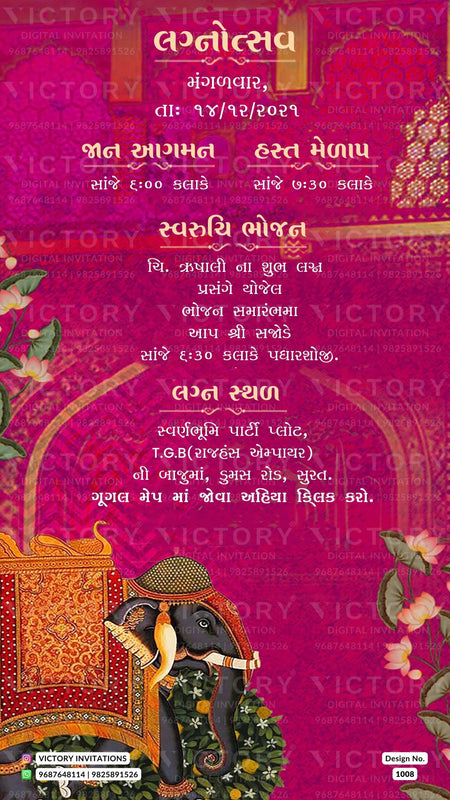 લગ્નોત્સવ
મંગળવાર,
તાઃ ૧૪/૧૨/૨૦૨૧
જાન આગમન
સાંજે ૬:૦૦ કલાકે
હસ્ત મેળાપ
સાંજે ૭:૩૦ કલાકે
સ્વરુચિ ભોજન
ચિ. ઋષાલી ના શુભ લગ્ન
પ્રસંગે યોજેલ
ભોજન સમારંભમા
આપ શ્રી સજોડે
સાંજે ૬:૩૦ કલાકે પધારશોજી.
લગ્ન સ્થળ
સ્વર્ણભૂમિ પાર્ટી પ્લોટ,
T.G.B(રાજહંસ એમ્પાયર)
ની બાજુમાં, ડુમસ રોડ, સુરત.
ગૂગલ મેપ માં જોવા અહિયા ક્લિક કરો.
VICTORY INVITATIONS
9687648114 | 9825891526
Design No.
1008
VICTORY
DIGITAL INVITATION
9687648114 | 9825891526